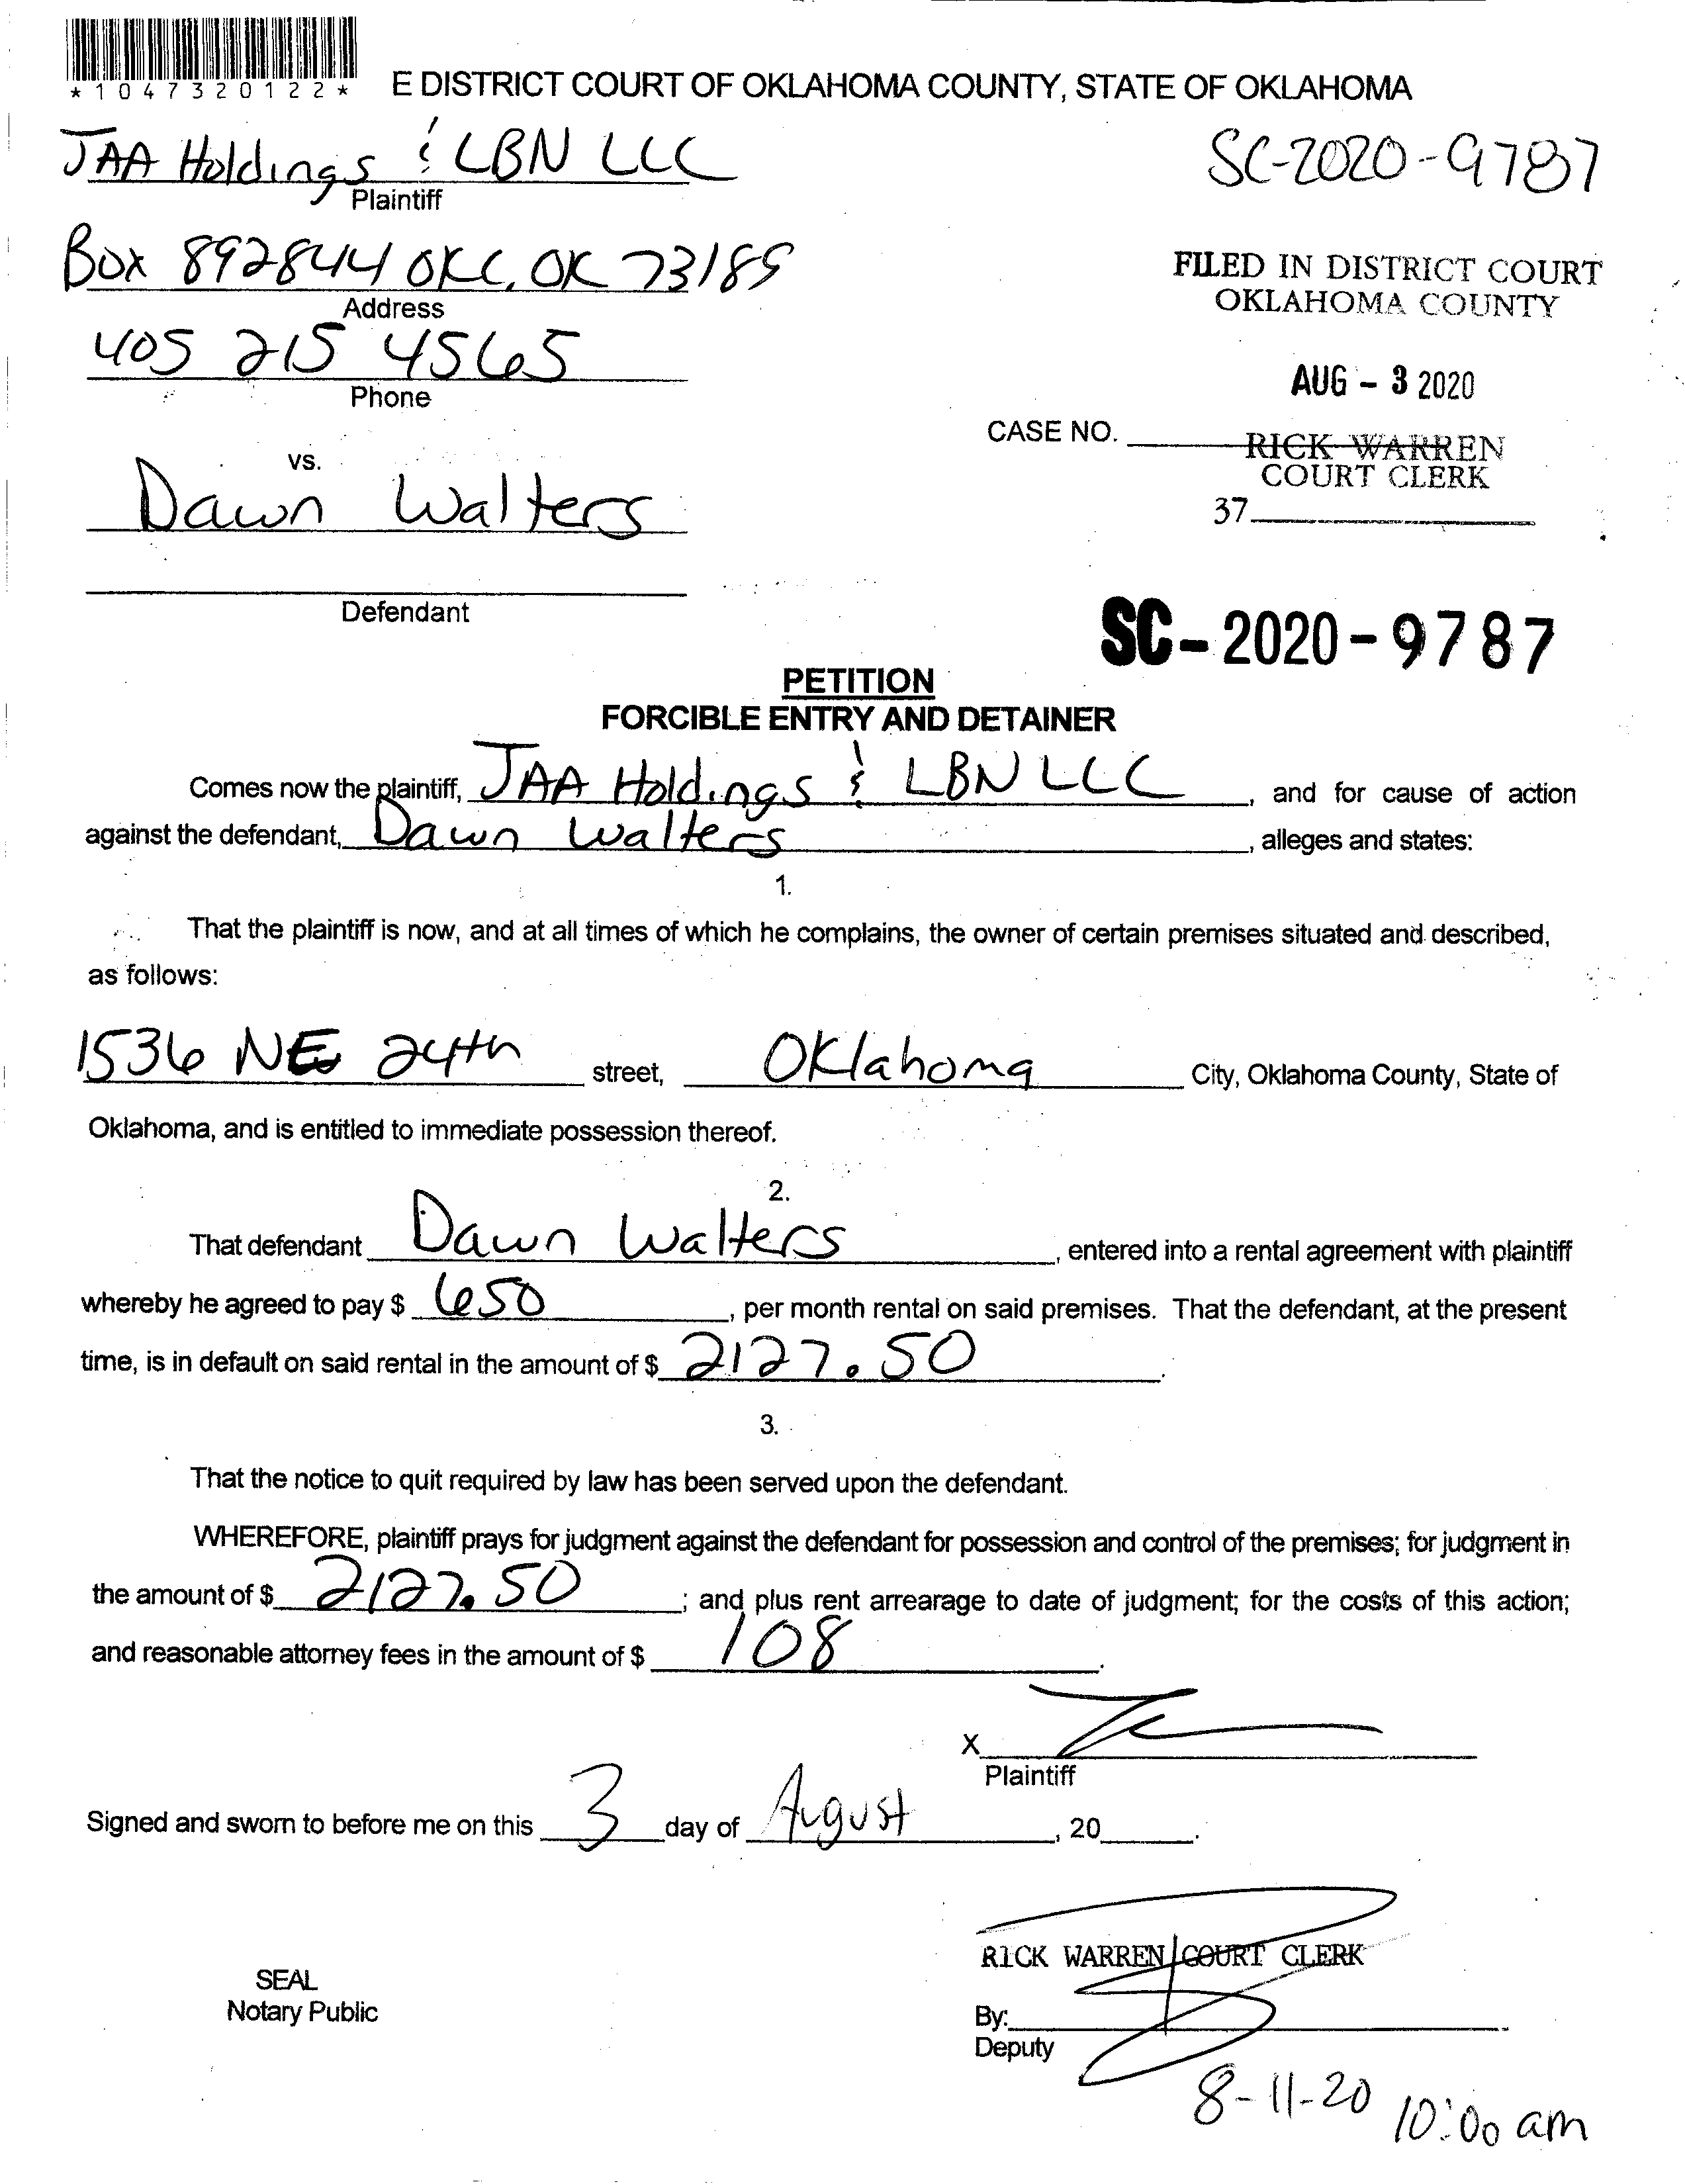 *1047320122*
E DISTRICT COURT OF OKLAHOMA COUNTY, STATE OF OKLAHOMA
JAA Holdings & LBN LLC
Plaintiff
SC-2020-9787
Box 892844 OKC, OK 73189
Address
FILED IN DISTRICT COURT
OKLAHOMA COUNTY
405 215 4565
Phone
AUG - 3 2020
CASE NO.
RICK WARREN
COURT CLERK
37
vs.
Dawn Walters
Defendant
SC-2020-9787
PETITION
FORCIBLE ENTRY AND DETAINER
Comes now the plaintiff, JAA Holdings & LBN LLC, and for cause of action
against the defendant, Dawn Walters, alleges and states:
1.
That the plaintiff is now, and at all times of which he complains, the owner of certain premises situated and described,
as follows:
1536 NE 24th street, Oklahoma City, Oklahoma County, State of
Oklahoma, and is entitled to immediate possession thereof.
2.
That defendant Dawn Walters, entered into a rental agreement with plaintiff
whereby he agreed to pay $ 650, per month rental on said premises. That the defendant, at the present
time, is in default on said rental in the amount of $ 2127.50.
3.
That the notice to quit required by law has been served upon the defendant.
WHEREFORE, plaintiff prays for judgment against the defendant for possession and control of the premises; for judgment in
the amount of $ 2127.50; and plus rent arrearage to date of judgment; for the costs of this action;
and reasonable attorney fees in the amount of $ 108.
X
Plaintiff
Signed and sworn to before me on this 3 day of August, 20 .
RICK WARREN COURT CLERK
SEAL
Notary Public
By:
Deputy
8-11-20 10:00 am